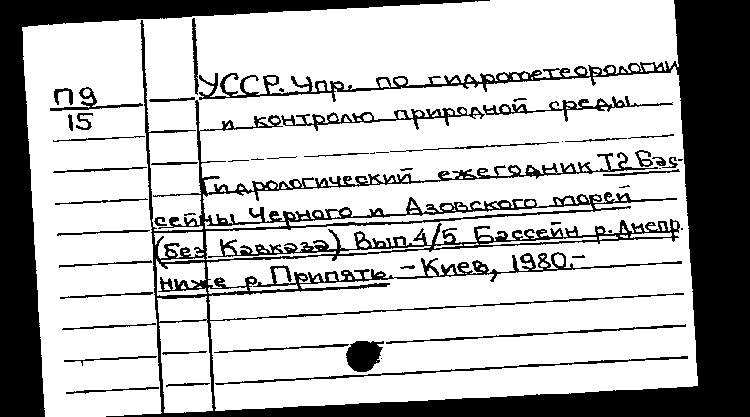 П9
15
УССР. Упр. по гидрометеорологии
и контролю природной среды.
Гидрологический ежегодник Т2 Бас-
сейны Черного и Азовского морей
(без Кавказа) Вып. 4/5 Бассейн р. Днепр.
ниже р. Припять. – Киев, 1980.–